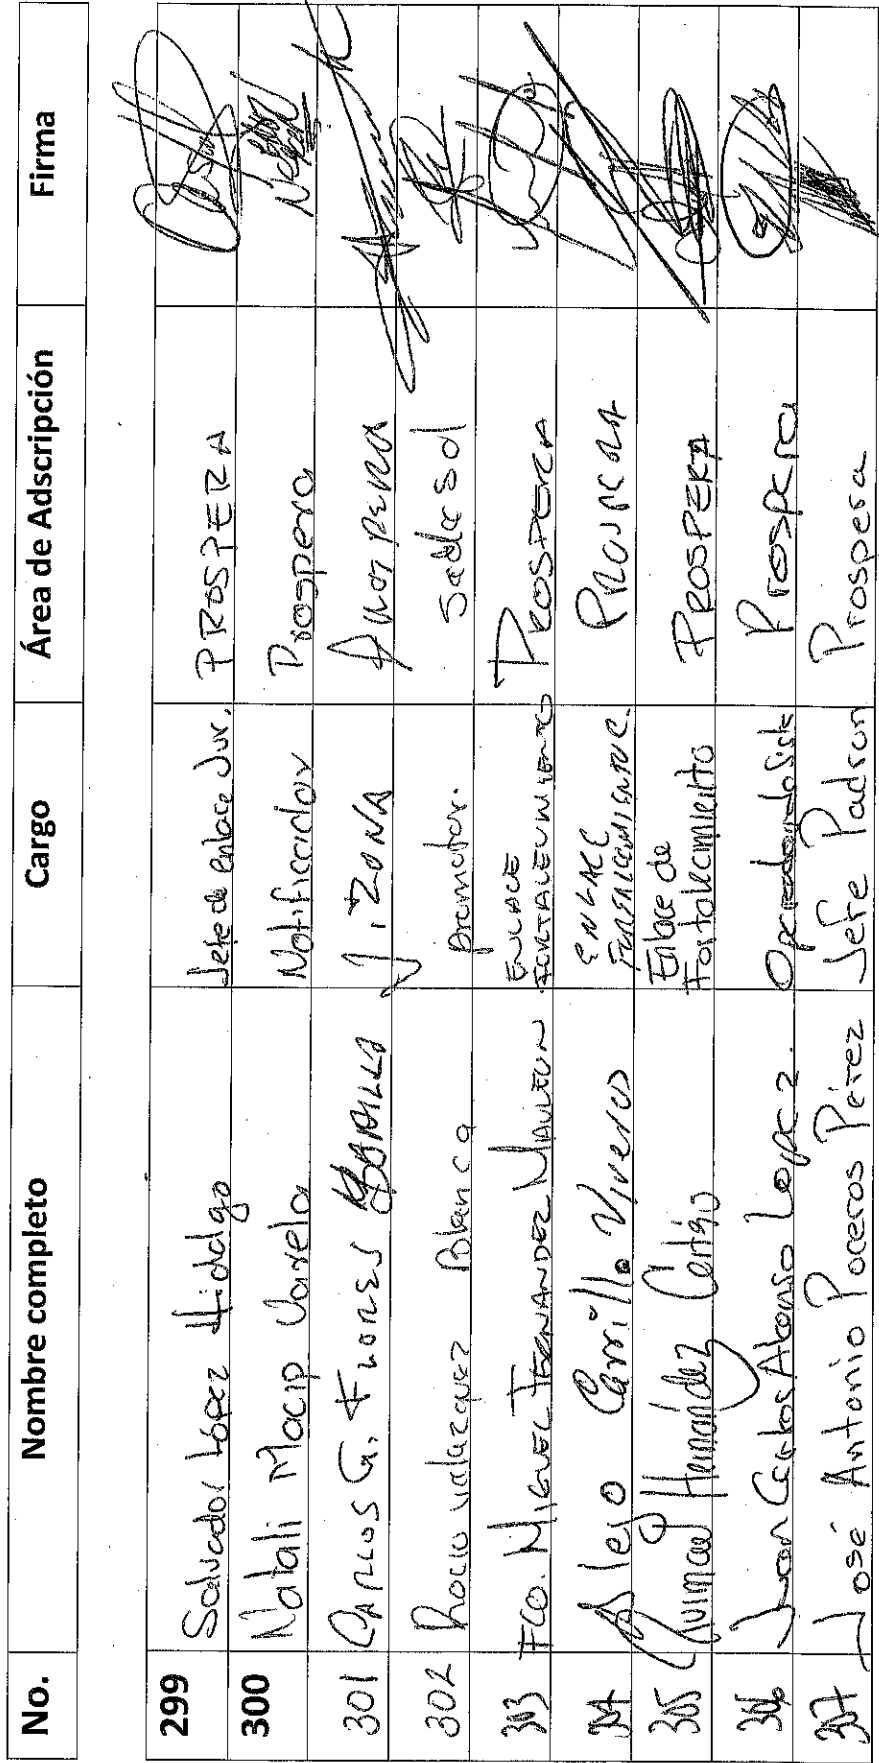 No. Nombre completo Cargo Área de Adscripción Firma
299 Salvador López Hidalgo Jefe de enlace Jur. PROSPERA
300 Natali Macip Varela Notificador Prospera
301 CARLOS G. FLORES BADILLO J. ZONA PROSPERA
302 Rocio Velazquez Blanca Promotor. Sedesol
303 FCO. MIGUEL FERNANDEZ MAULEON ENLACE FORTALECIMIENTO PROSPERA
304 Alejo Carrillo Viveros ENLACE FORTALECIMIENTO PROSPERA
305 Hernández Enlace de Fortalecimiento PROSPERA
306 Juan Carlos Alonso Lopez. Prospera
307 José Antonio Poceros Pérez Jefe Padron Prospera